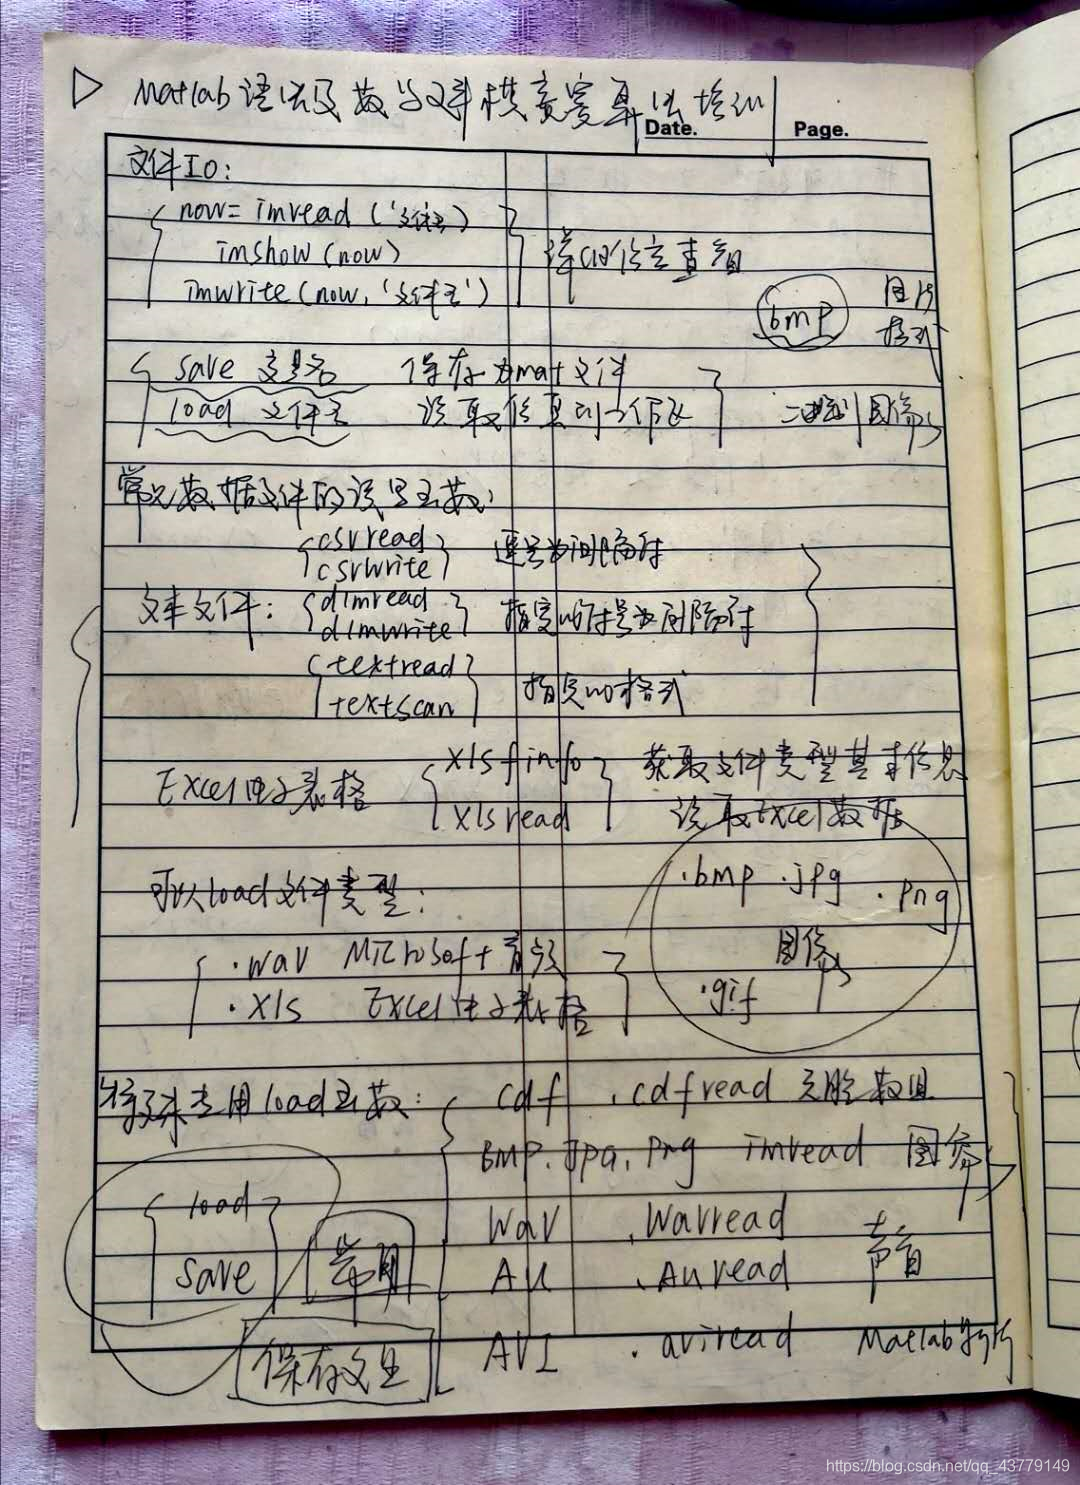 Matlab语法及数学建模竞赛算法培训
Date. Page.
文件IO:
now=imread('文件名')
imshow(now)
imwrite(now,'文件名')
详细信息查
bmp 图像
格式
save 变量名 保存为mat文件
load 文件名 读取信息到工作
图像
常见数据文件的读写函数:
csvread
csvwrite
逗号为间隔符
文本文件:
dlmread
dlmwrite
指定的符号为间隔符
textread
textscan
指定的格式
Excel电子表格
xlsfinfo 获取文件类型基本信息
xlsread 读取Excel数据
可以load文件类型:
.bmp .jpg .png
图像
.gif
.wav Microsoft音频
.xls Excel电子表格
特殊专用load函数:
cdf .cdfread 元胞数组
BMP.Jpg.Png imread 图像
Wav .Wavread
AU .Auread
声音
AVI .aviread Matlab
load
save
常用
保存
https://blog.csdn.net/qq_43779149